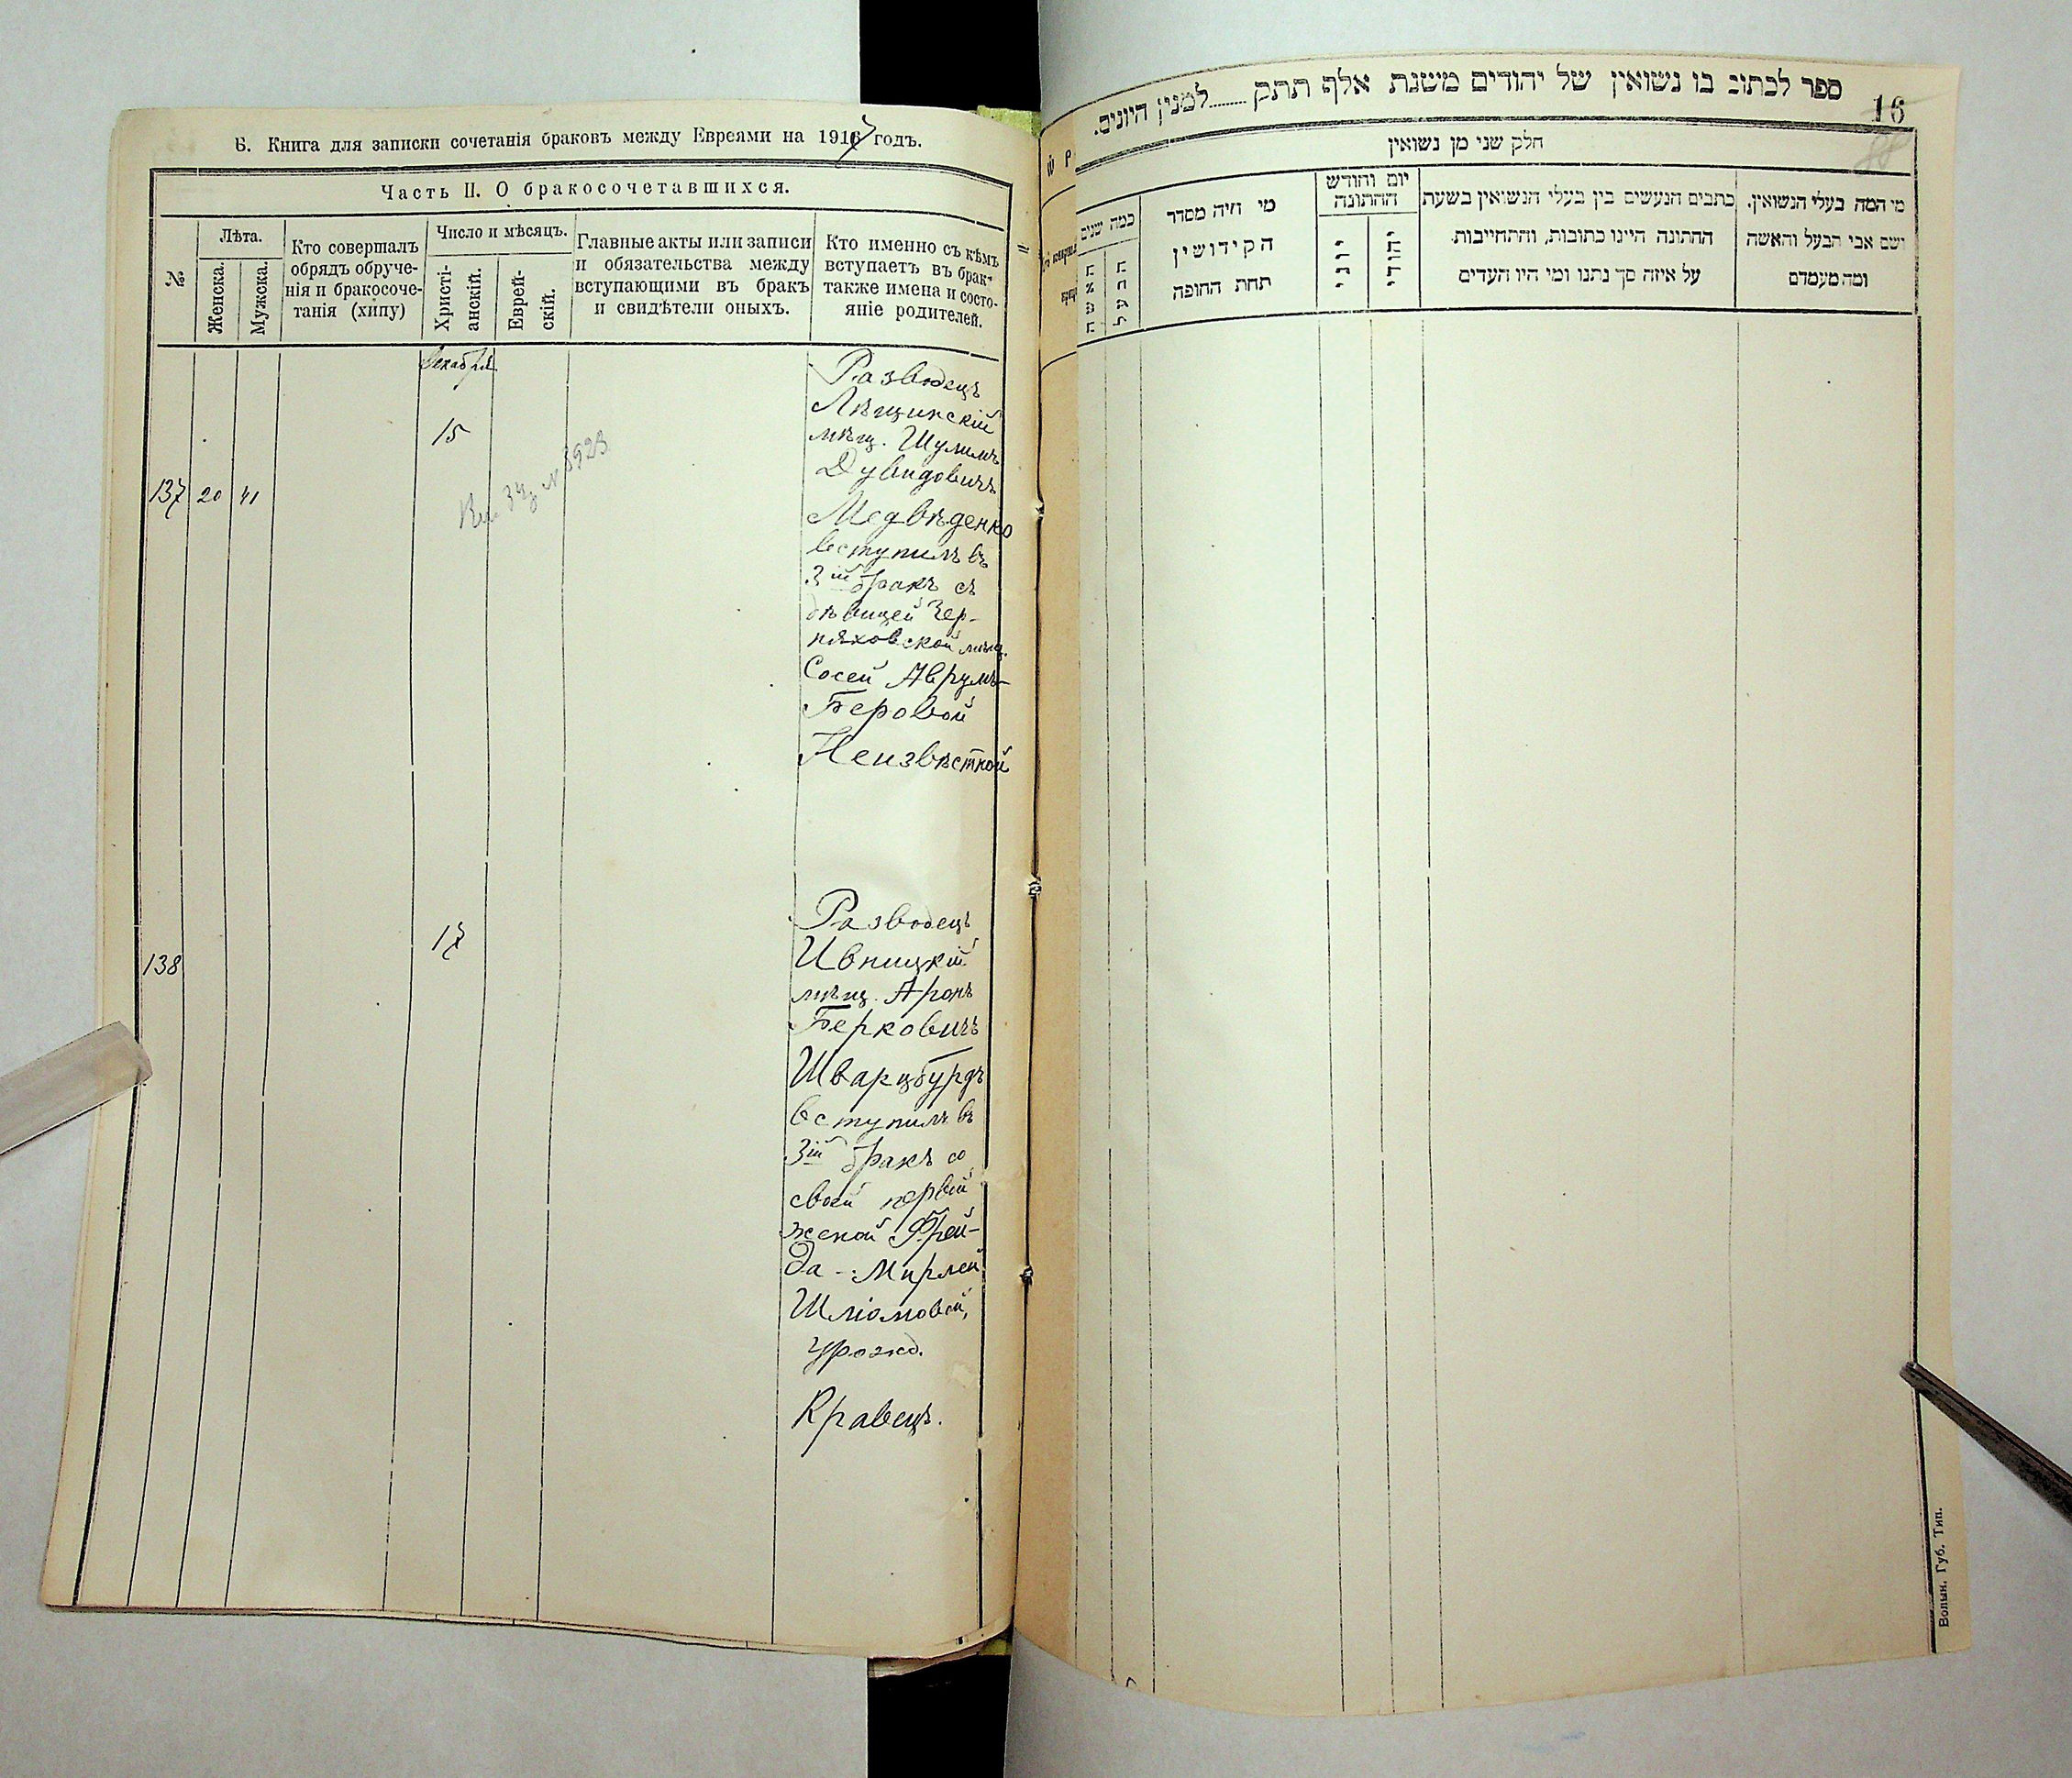 Б. Книга для записки сочетанія браковъ между Евреями на 1917 годъ.
Часть II. О бракосочетавшихся.
№
Лѣта.
Женска.
Мужска.
Кто совершалъ
обрядъ обруче-
нія и бракосоче-
танія (хипу)
Число и мѣсяцъ.
Христі-
анскій.
Еврей-
скій.
Главные акты или записи
и обязательства между
вступающими въ бракъ
и свидѣтели оныхъ.
Кто именно съ кѣмъ
вступаетъ въ бракъ
также имена и состо-
яніе родителей.
Декабря
137
20
41
15
№ 3923
Разводецъ
Лѣщинскій
мѣщ. Шулимъ
Дувидовичъ
Медвѣденко
вступилъ въ
3ій бракъ съ
дѣвицей Чер-
няховской мѣщ.
Сосей Аврумъ-
Беровой
Неизвѣстной
138
17
Разводецъ
Ивницкій
мѣщ. Аронъ
Берковичъ
Шварцбурдъ
вступилъ въ
3ій бракъ со
своей первой
женой Фрей-
да-Мирлей
Шліомовой,
урожд.
Кравецъ.
ספר לכתוב בו נשואין של יהודים משנת אלף תתק........למנין היונים.
16
חלק שני מן נשואין
כמה שנים
האשה
הבעל
מי היה מסדר
הקידושין
תחת החופה
יום וחודש
החתונה
יוני
יהודי
כתבים הנעשים בין בעלי הנשואין בשעת
החתונה היינו כתובות, והתחייבות
על איזה סך נתנו ומי היו העדים
מי המה בעלי הנשואין.
ושם אבי הבעל והאשה
ומה מעמדם
Волын. Губ. Тип.